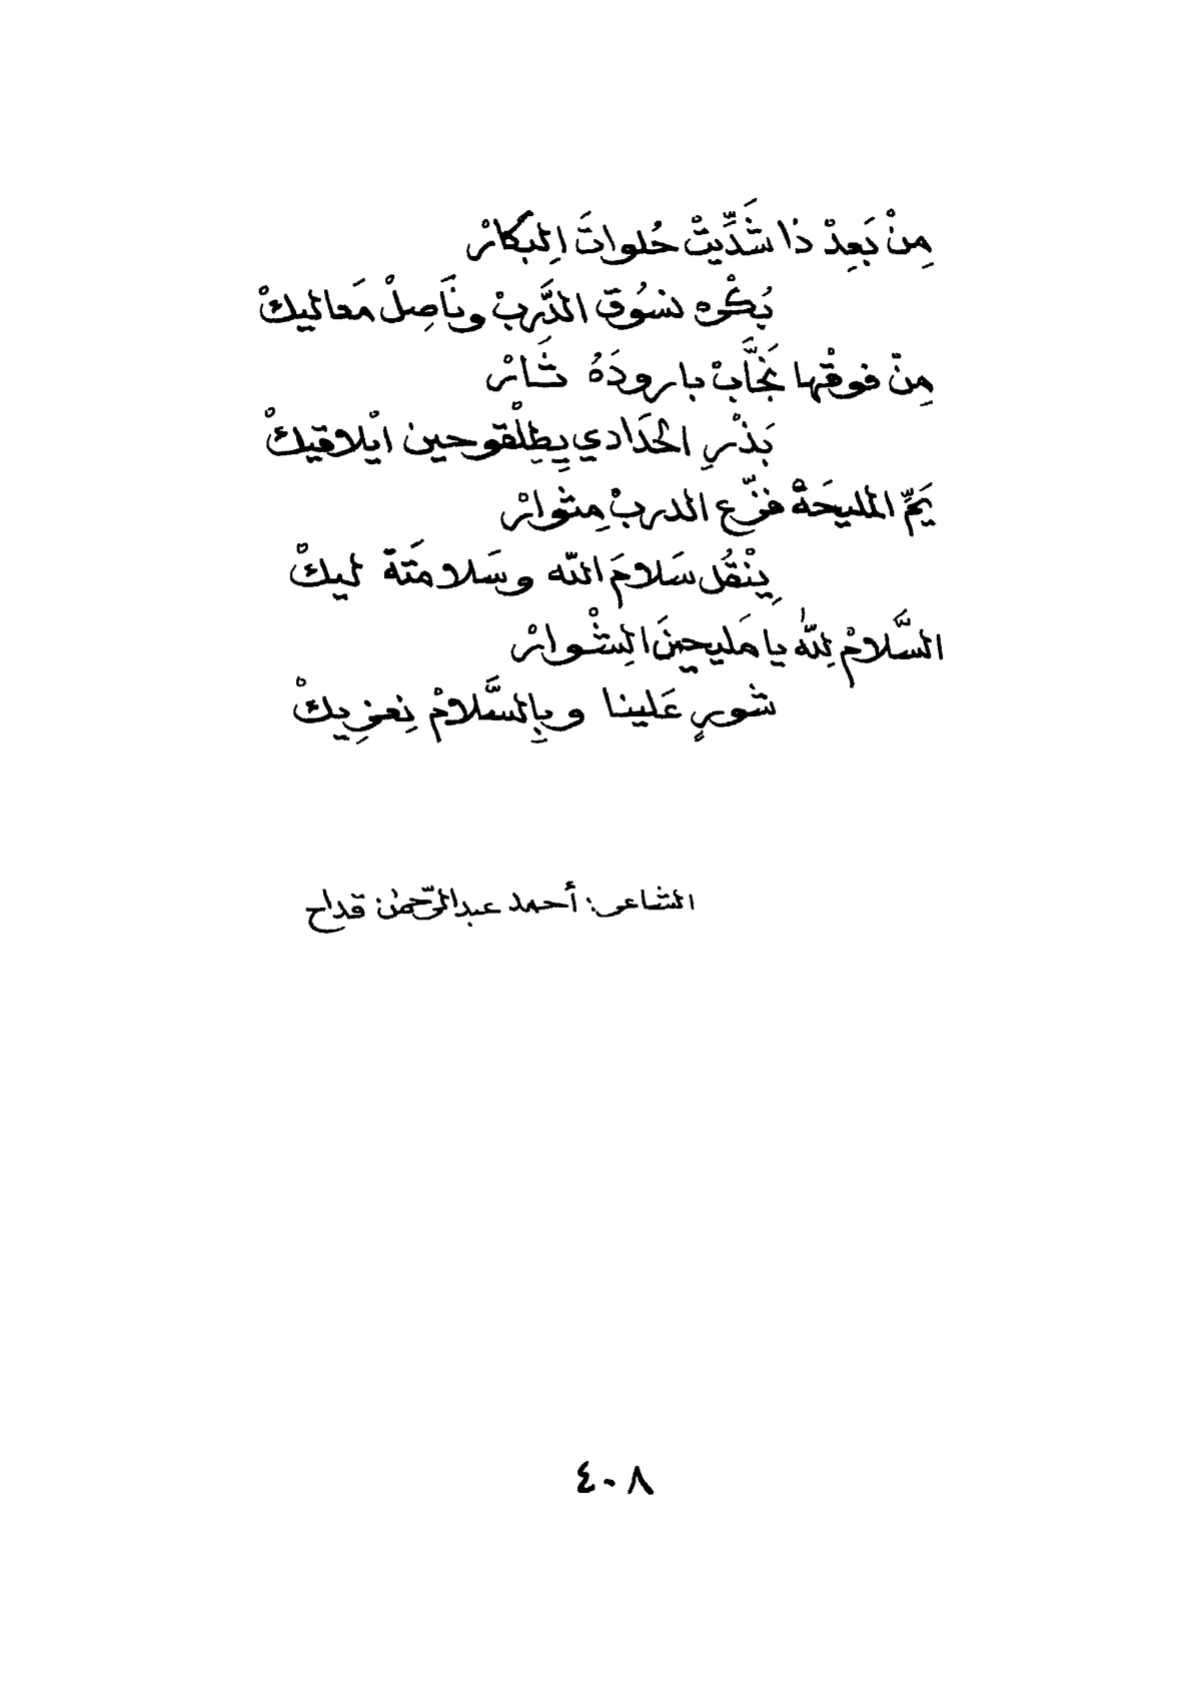 مِنْ بَعِدْ ذا شَدِّيتْ حُلواتَ اِلبَكارْ
بُكْره نسُوق الدَّربْ ونَاصِلْ مَعاليكْ
مِنْ فوقْها نجَّابْ بارودَهُ ثَارْ
بَذْرِ الحَدادي يِطِلْقو حين ايْلاقيكْ
يَمِّ المليحَةْ فزّع الدربْ مِثوارْ
يِنْقُل سَلامَ الله وسَلامَتَة ليكْ
السَّلامْ لِلّٰه يا مَليحينَ الِشْوارْ
شورٍ عَلينا وبِالسَّلامْ نِعزِيكْ
الشاعر: أحمد عبدالرّحمن قداح
٤٠٨